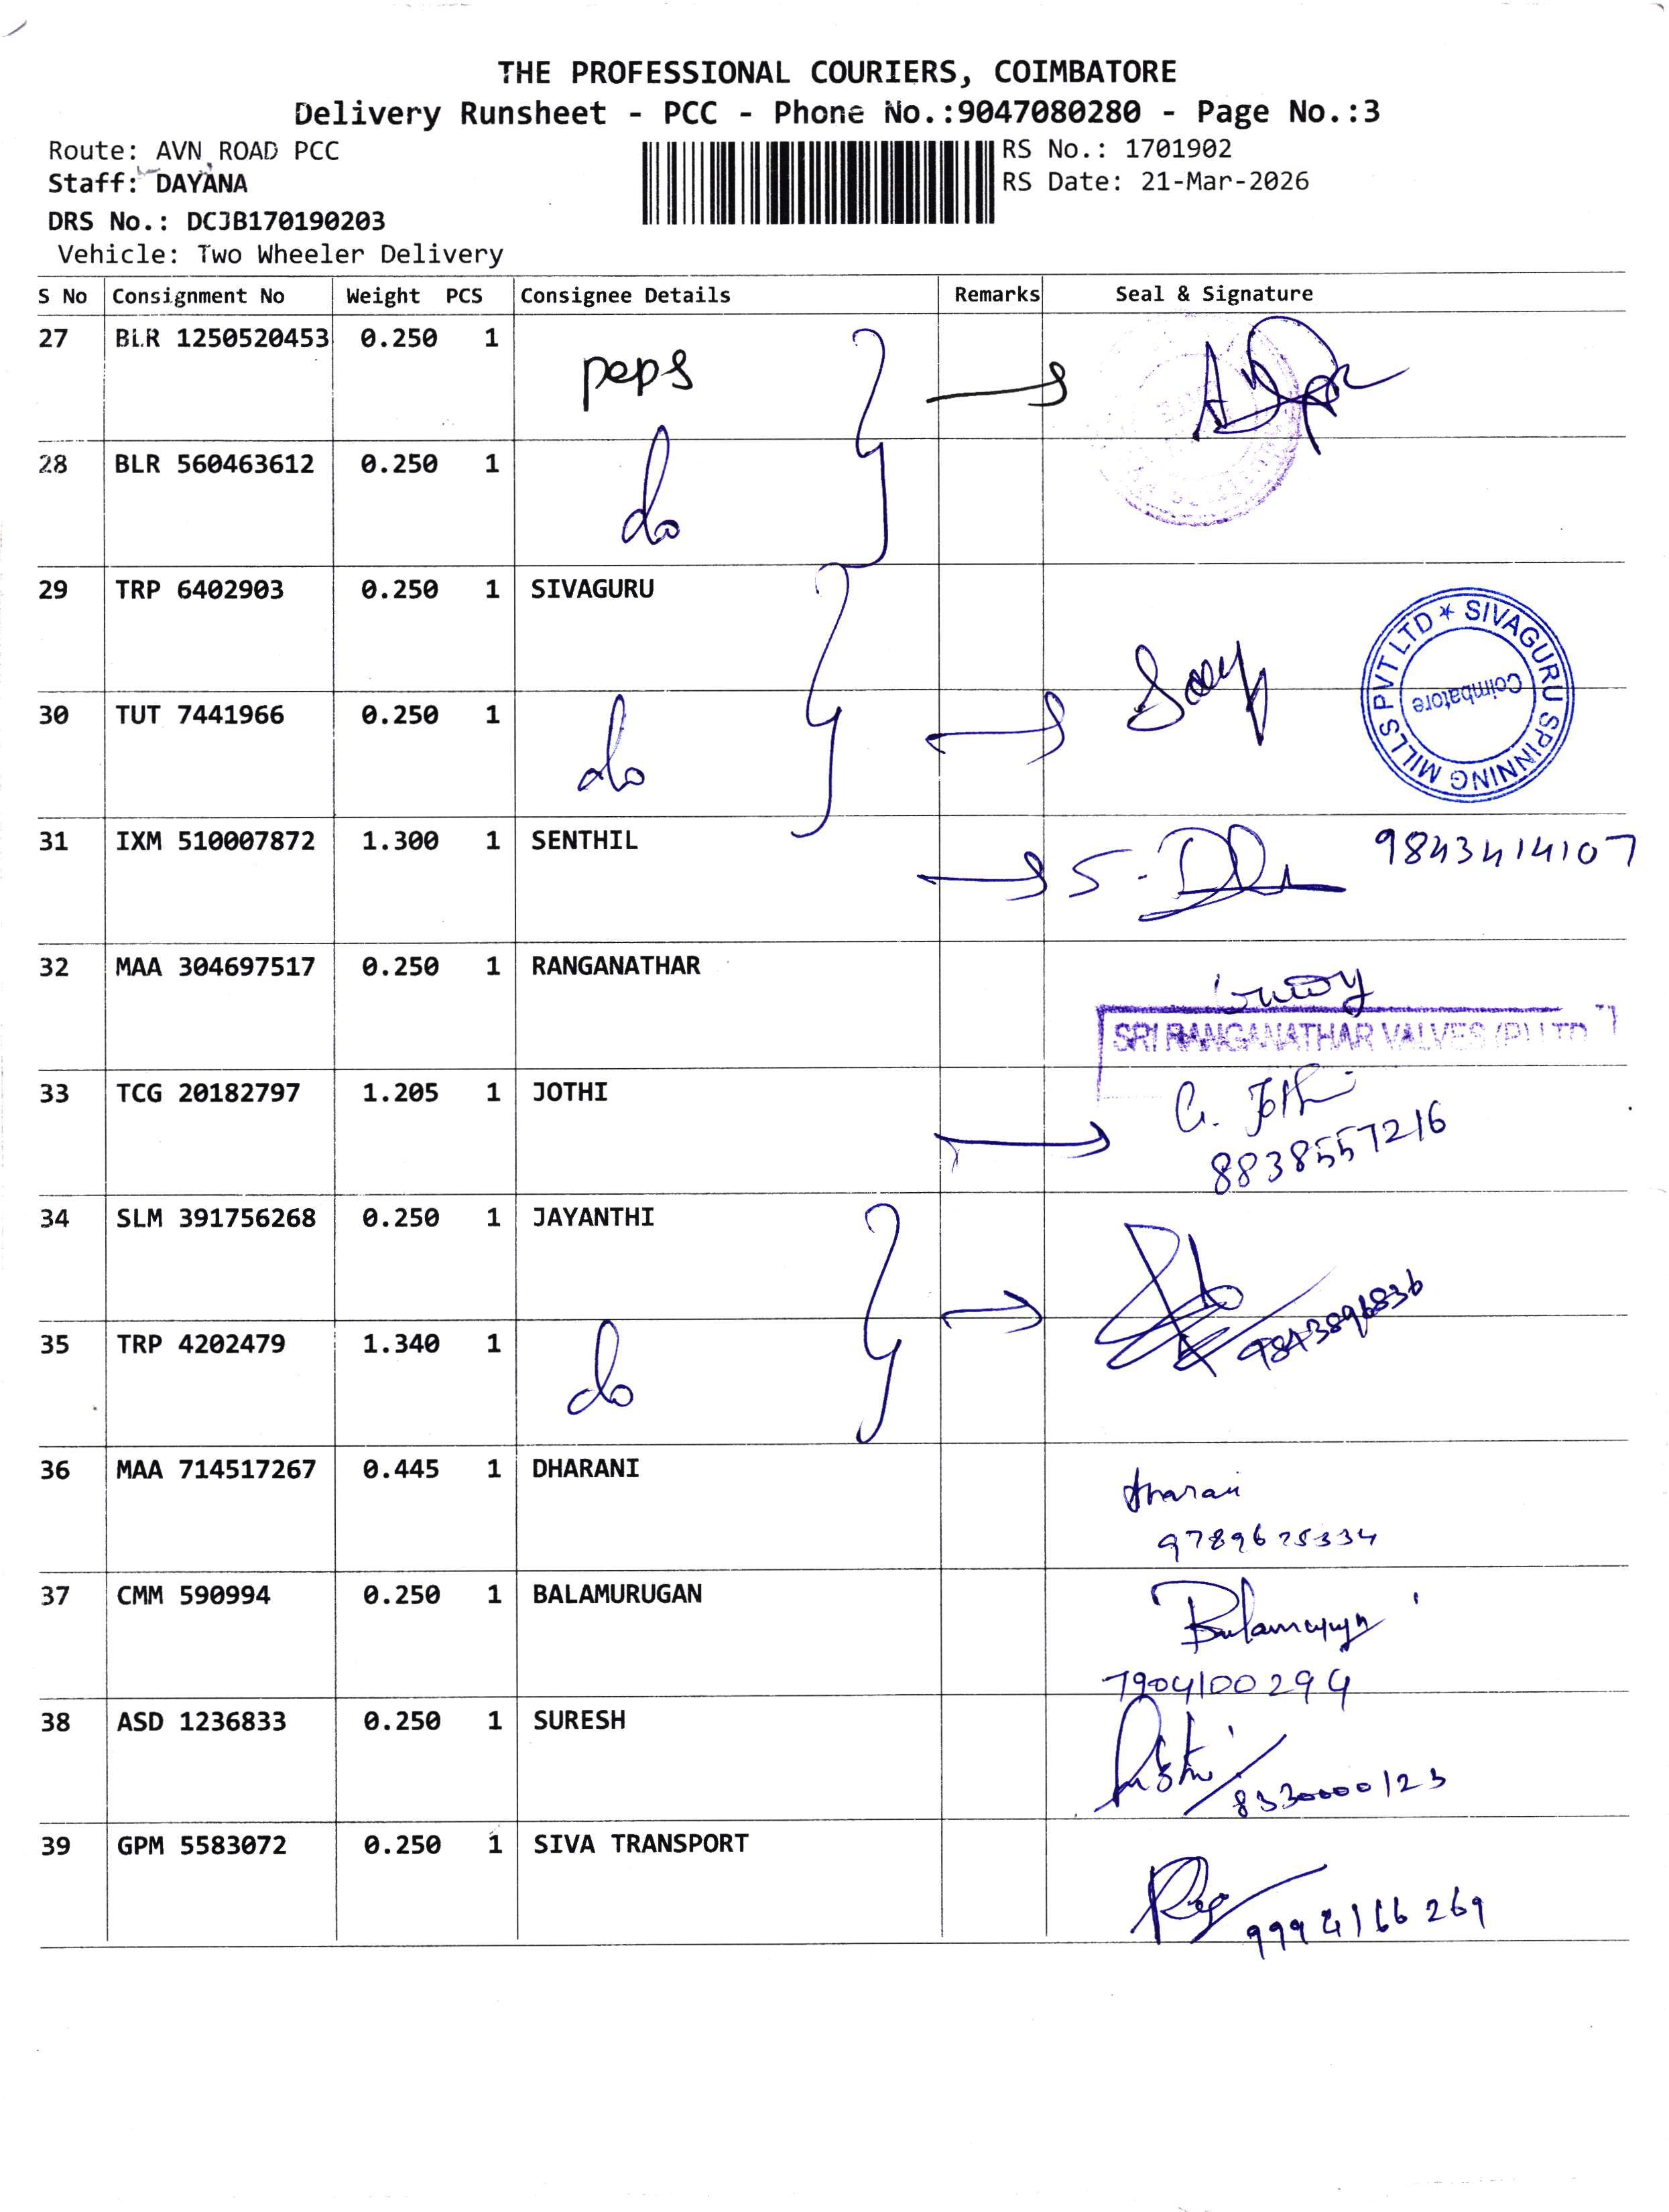 THE PROFESSIONAL COURIERS, COIMBATORE
Delivery Runsheet - PCC - Phone No.:9047080280 - Page No.:3
Route: AVN ROAD PCC
RS No.: 1701902
Staff: DAYANA
RS Date: 21-Mar-2026
DRS No.: DCJB170190203
Vehicle: Two Wheeler Delivery
S No Consignment No Weight PCS Consignee Details Remarks Seal & Signature
27 BLR 1250520453 0.250 1 peps
28 BLR 560463612 0.250 1 do
29 TRP 6402903 0.250 1 SIVAGURU
SIVAGURU SPINNING MILLS PVT LTD * Coimbatore
30 TUT 7441966 0.250 1 do
31 IXM 510007872 1.300 1 SENTHIL 9843414107
32 MAA 304697517 0.250 1 RANGANATHAR
SRI RANGANATHAR VALVES (P) LTD
33 TCG 20182797 1.205 1 JOTHI G. Jothi
8838557216
34 SLM 391756268 0.250 1 JAYANTHI
9843896836
35 TRP 4202479 1.340 1 do
36 MAA 714517267 0.445 1 DHARANI dharani
9789675334
37 CMM 590994 0.250 1 BALAMURUGAN Balamurugan
7904100294
38 ASD 1236833 0.250 1 SURESH
8330000123
39 GPM 5583072 0.250 1 SIVA TRANSPORT
9994166269